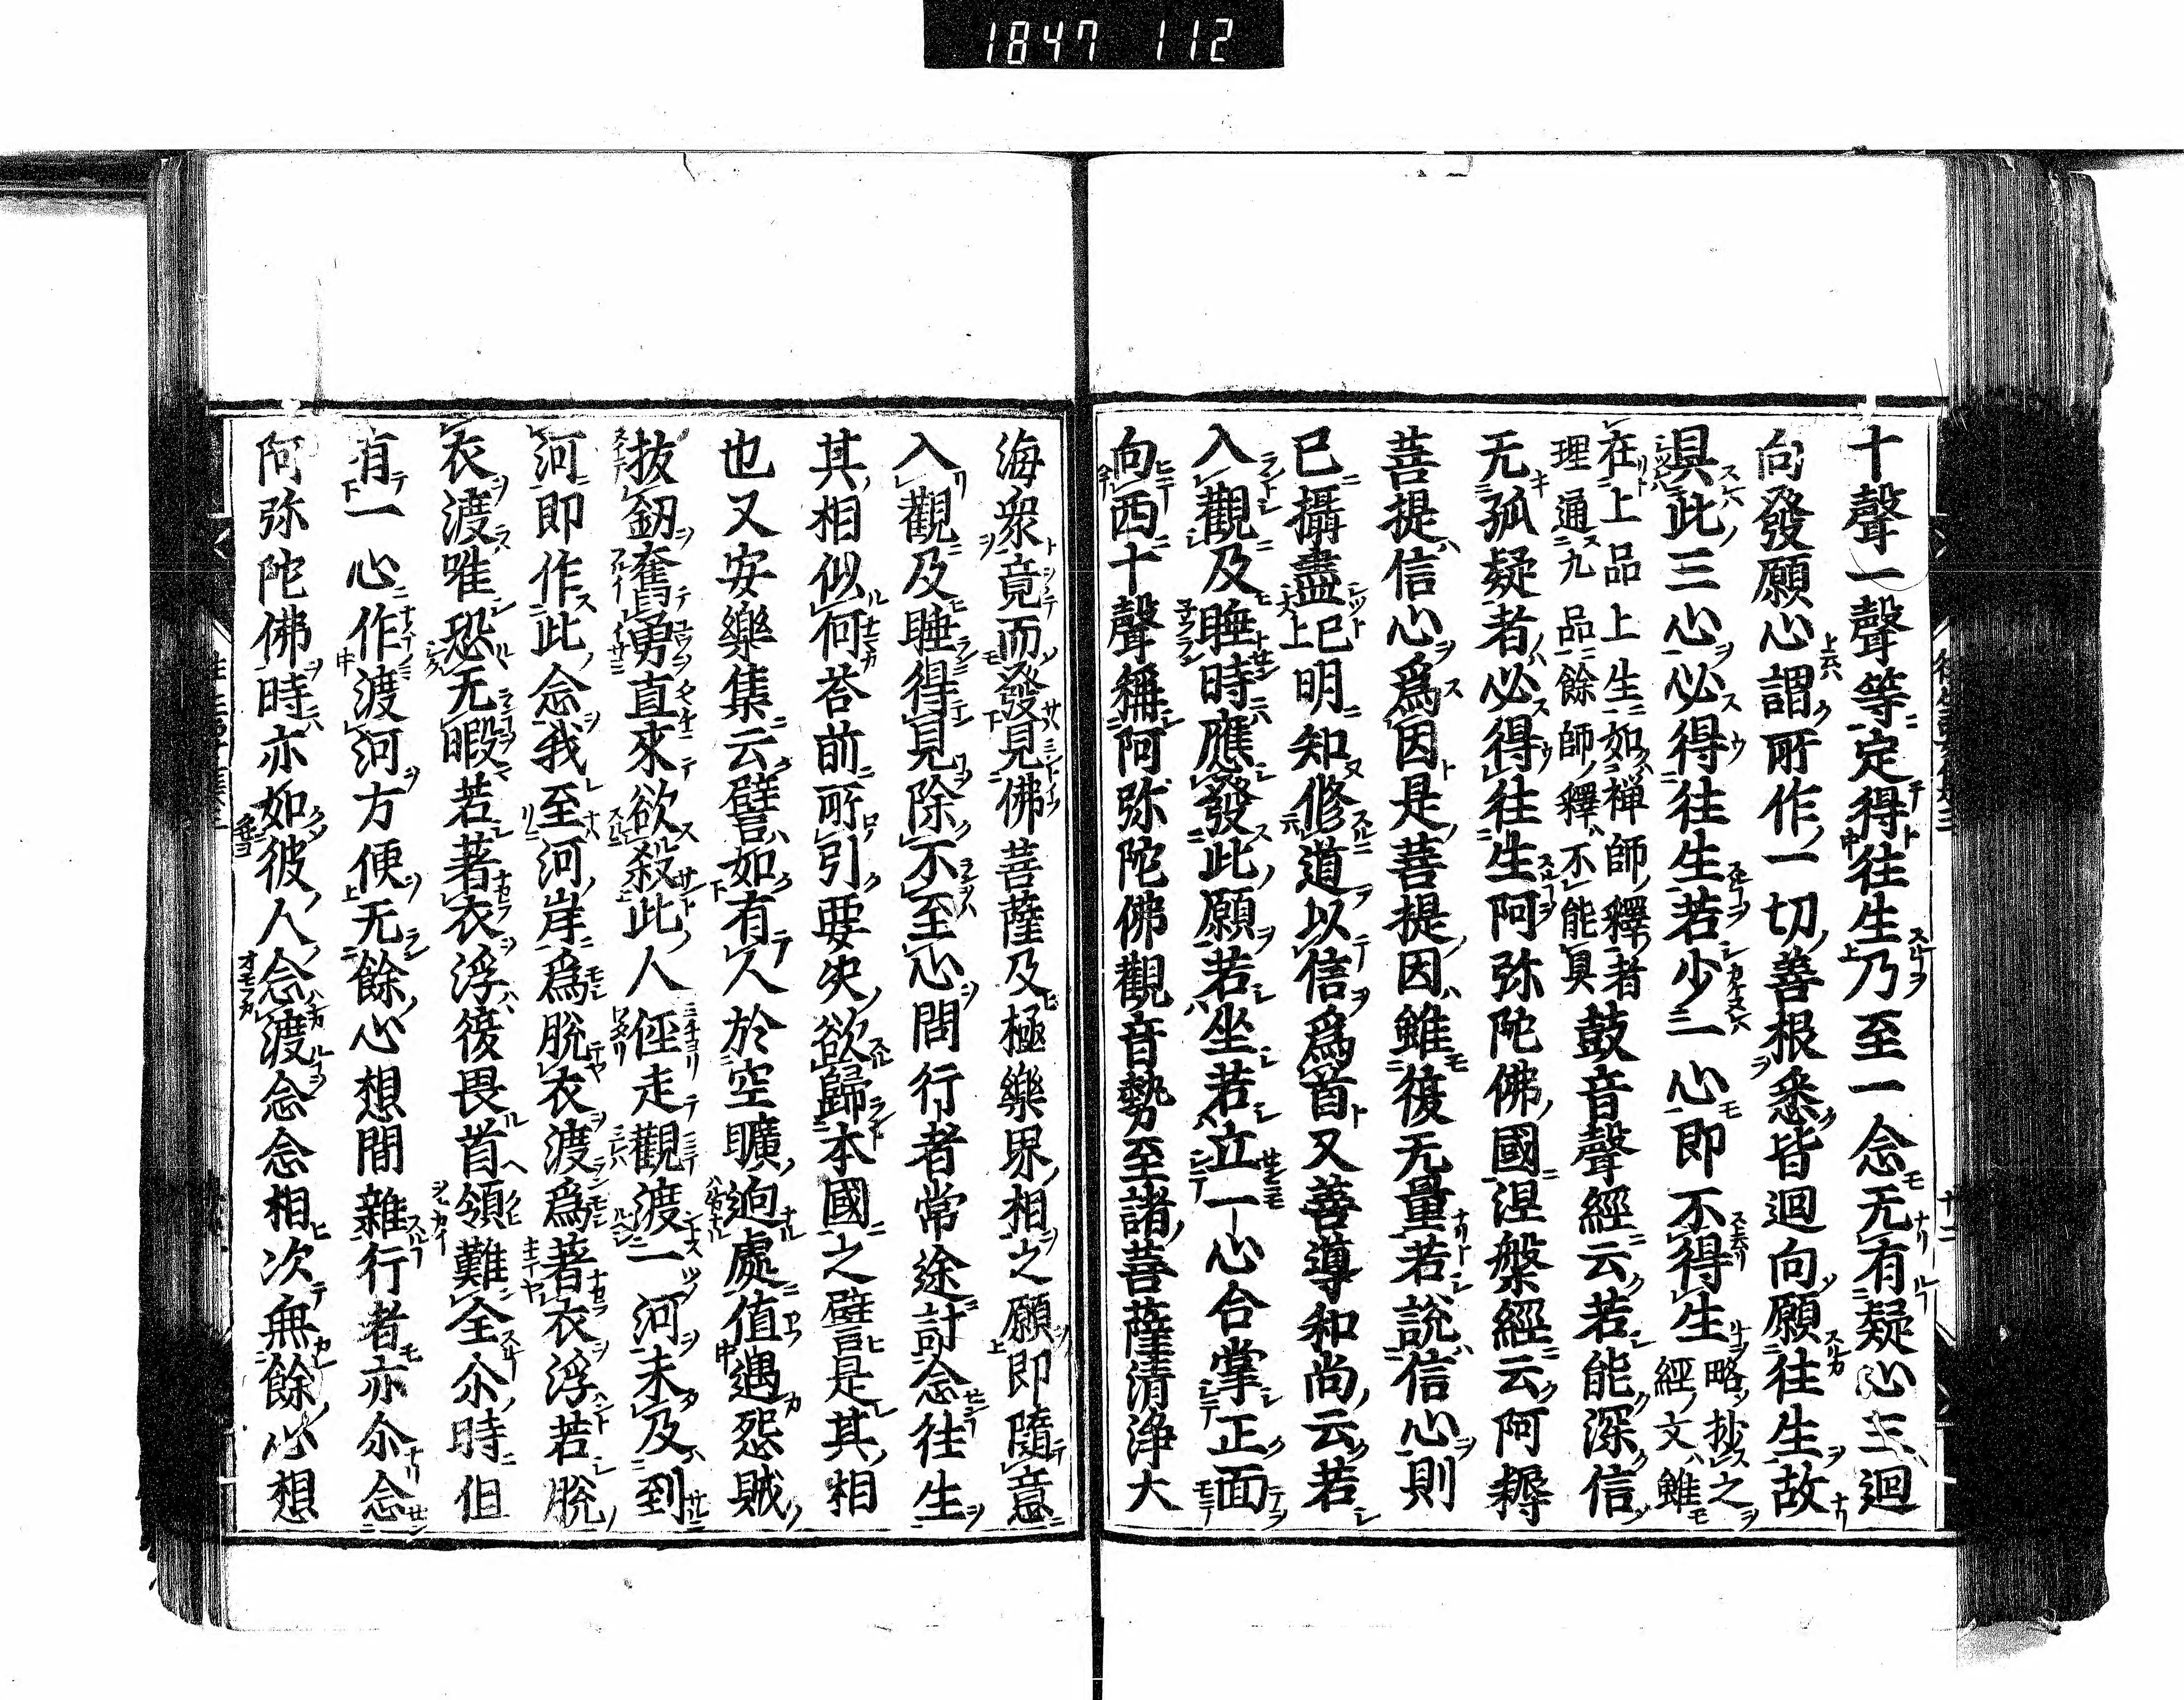 1847 112
十聲一聲等定得往生乃至一念无有疑心三迴
向發願心謂所作一切善根悉皆迴向願往生故
具此三心必得往生若少一心即不得生略抄之
經文雖
在上品上生如禅師釋者
理通九品餘師釋不能具
鼓音聲經云若能深信
无孤疑者必得往生阿弥陀佛國涅槃經云阿耨
菩提信心爲因是菩提因雖復无量若説信心則
已攝盡已上明知修道以信爲首又善導和尚云若
入觀及睡時應發此願若坐若立一心合掌正面
向西十聲稱阿弥陀佛觀音勢至諸菩薩清浄大
海衆竟而發見佛菩薩及極樂界相之願即隨意
入觀及睡得見除不至心問行者常途計念往生
其相似何荅前所引要决欲歸本國之譬是其相
也又安樂集云譬如有人於空曠逈處值遇怨賊
拔劒奮勇直來欲殺此人俓走觀渡一河未及到
河即作此念我至河岸爲脱衣渡爲著衣浮若脱
衣渡唯恐无暇若著衣浮後畏首領難全尒時但
有一心作渡河方便无餘心想間雜行者亦尒念
阿弥陀佛時亦如彼人念渡念念相次無餘心想